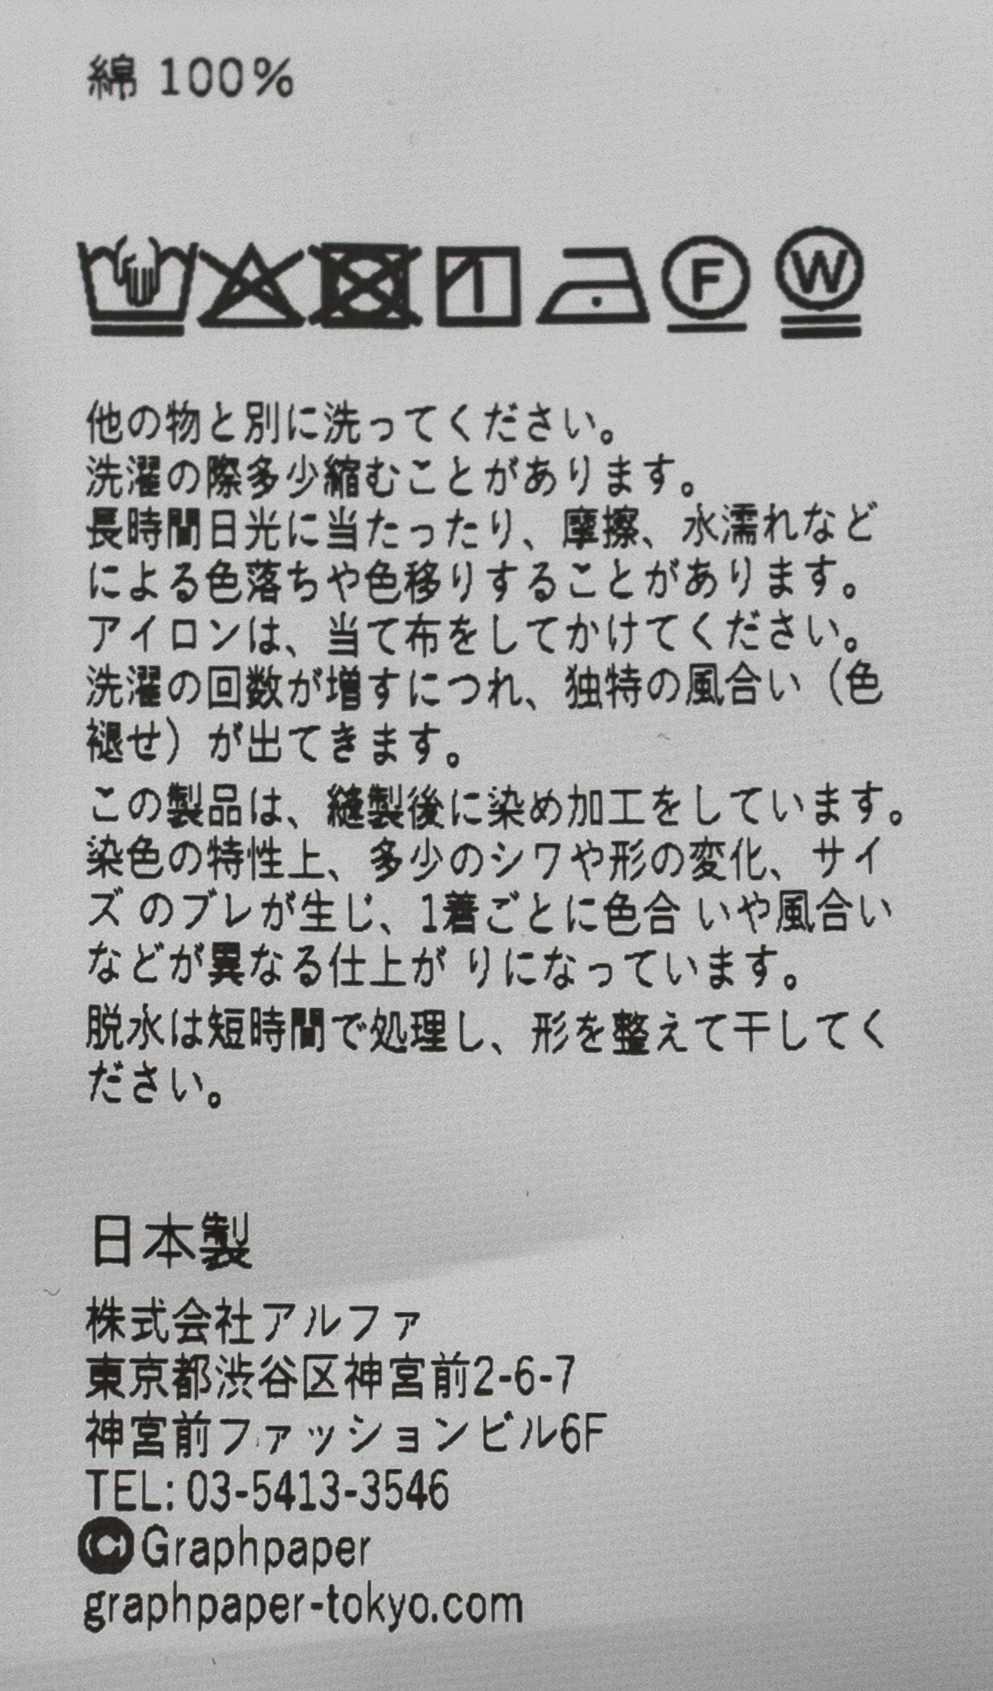 綿 100%
F W
他の物と別に洗ってください。
洗濯の際多少縮むことがあります。
長時間日光に当たったり、摩擦、水濡れなど
による色落ちや色移りすることがあります。
アイロンは、当て布をしてかけてください。
洗濯の回数が増すにつれ、独特の風合い（色
褪せ）が出てきます。
この製品は、縫製後に染め加工をしています。
染色の特性上、多少のシワや形の変化、サイ
ズ のブレが生じ、1着ごとに色合 いや風合い
などが異なる仕上が りになっています。
脱水は短時間で処理し、形を整えて干してく
ださい。
日本製
株式会社アルファ
東京都渋谷区神宮前2-6-7
神宮前ファッションビル6F
TEL: 03-5413-3546
©Graphpaper
graphpaper-tokyo.com